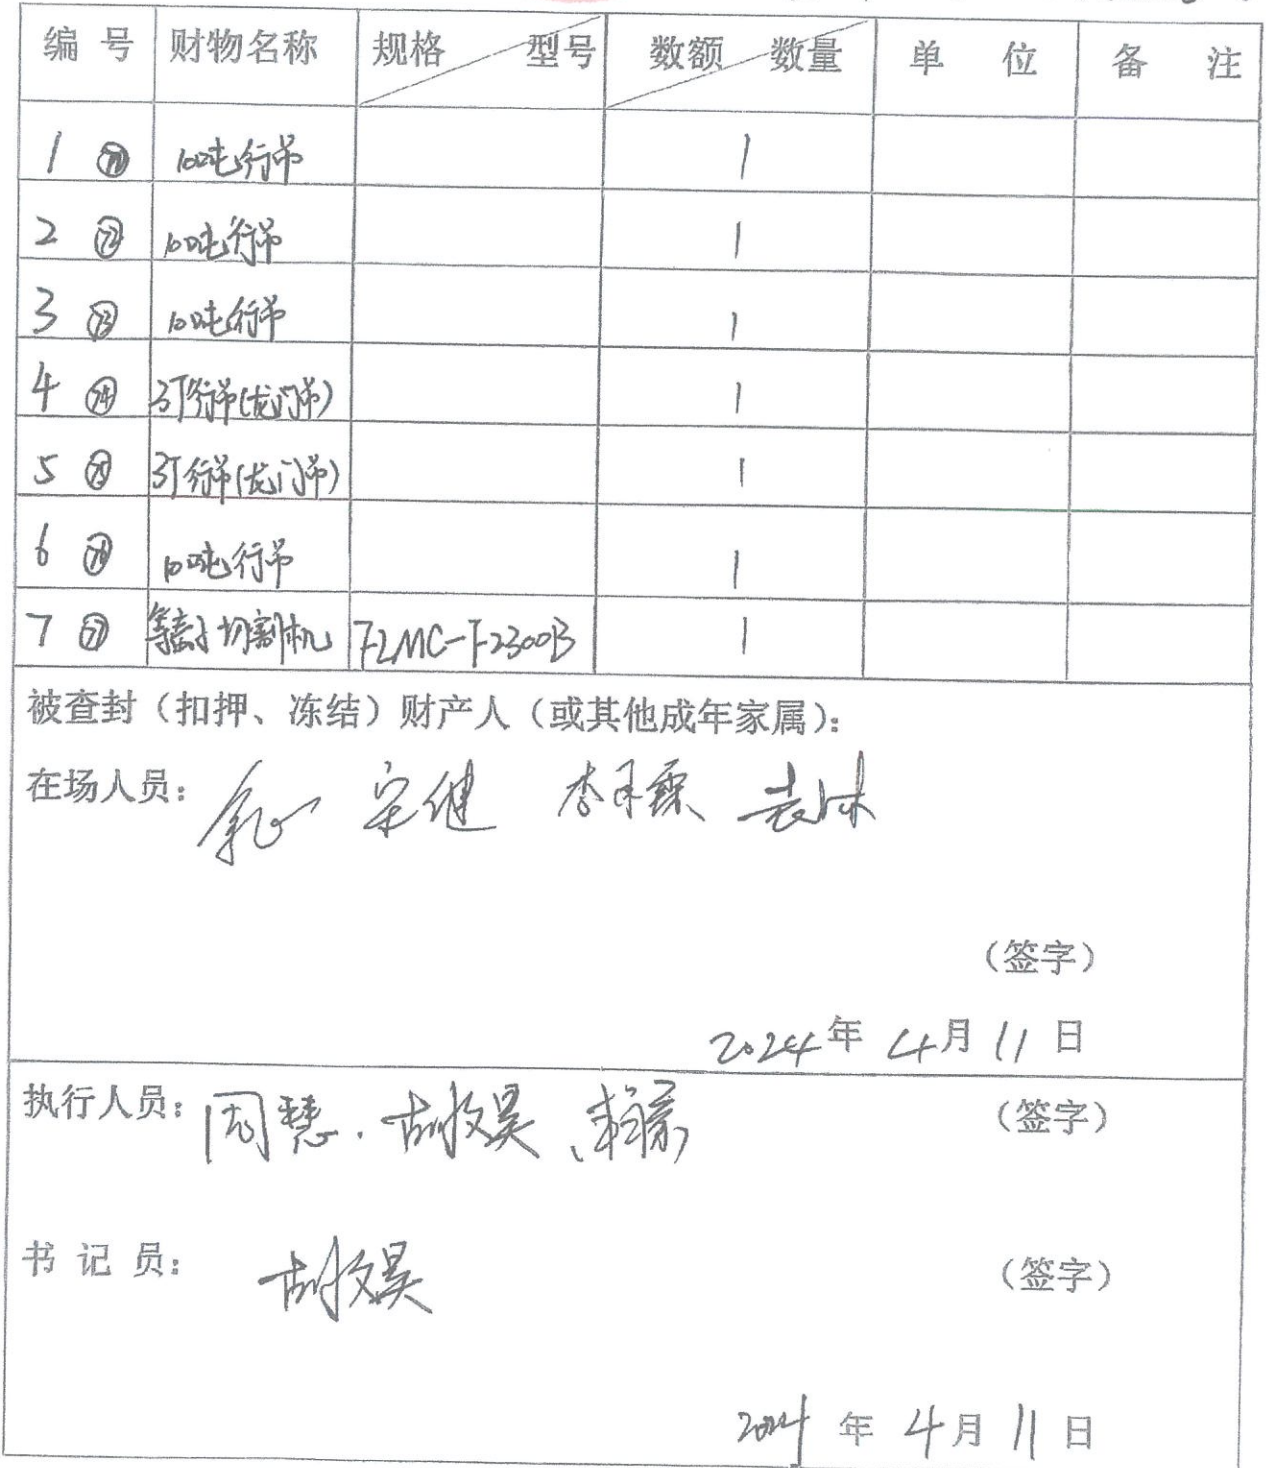 编 号 财物名称 规格 型号 数额 数量 单 位 备 注
1 10吨行吊 1
2 ㊷ 10吨行吊 1
3 10吨行吊 1
4 3T行吊(龙门吊) 1
5 3T行吊(龙门吊) 1
6 10吨行吊 1
7 等离子切割机 FLMC-F2300B 1
被查封（扣押、冻结）财产人（或其他成年家属）：
在场人员： 宋健
（签字）
2024年 4月 11 日
执行人员： 周慧、胡牧昊、 （签字）
书 记 员： 胡牧昊 （签字）
2024 年 4月 11 日